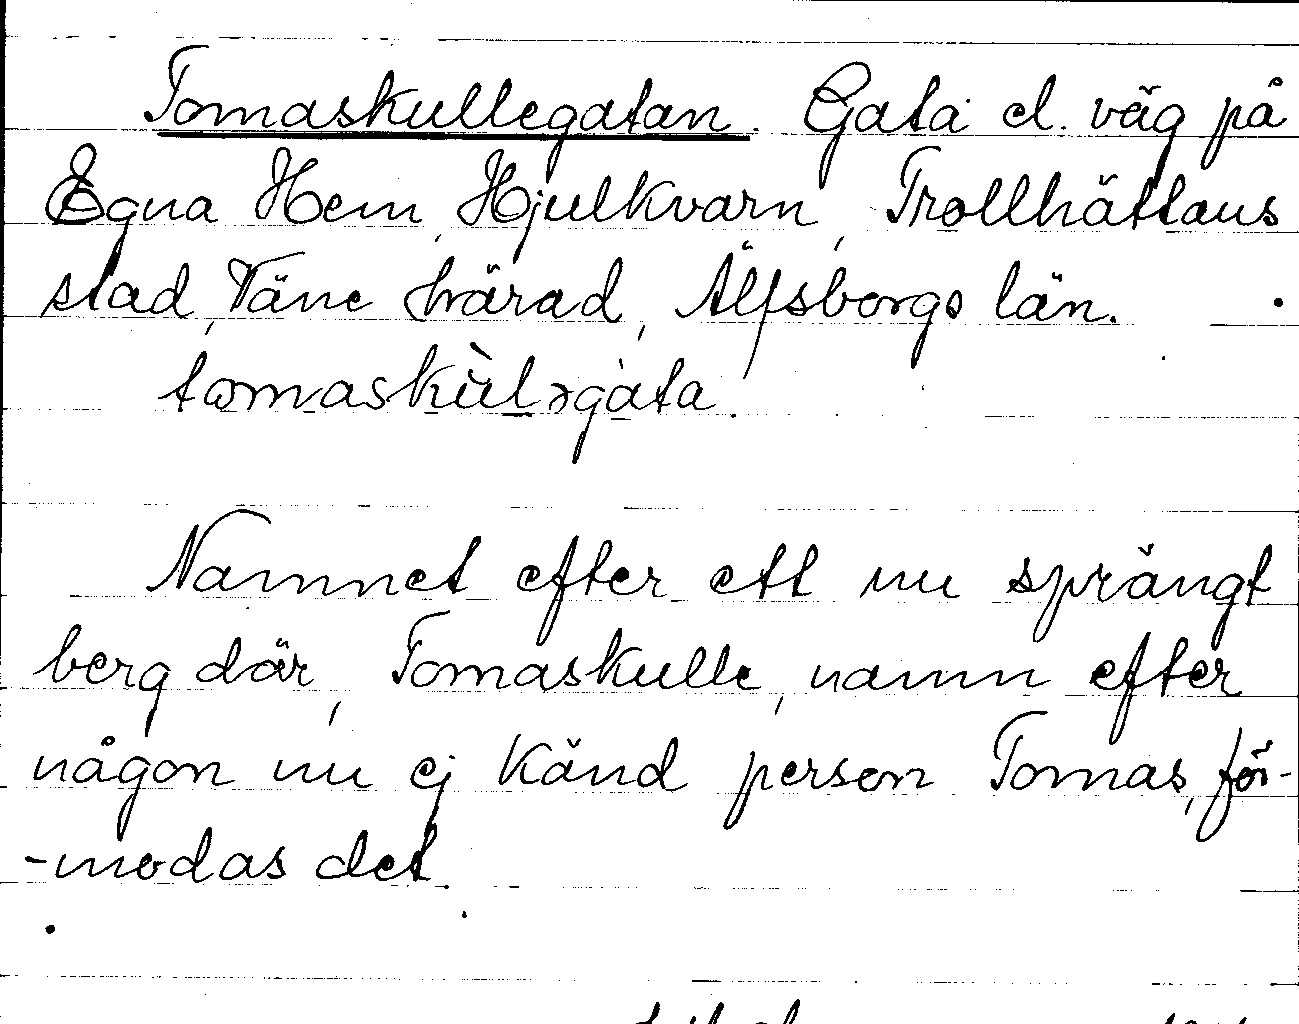 Tomaskullegatan. Gata el. väg på
Egna Hem, Hjulkvarn, Trollhättans
stad, Väne härad, Älfsborgs län.
tomaskùləgàta.
Namnet efter ett nu sprängt
berg där, Tomaskulle, namn efter
någon nu ej känd person Tomas, för-
-modas det.